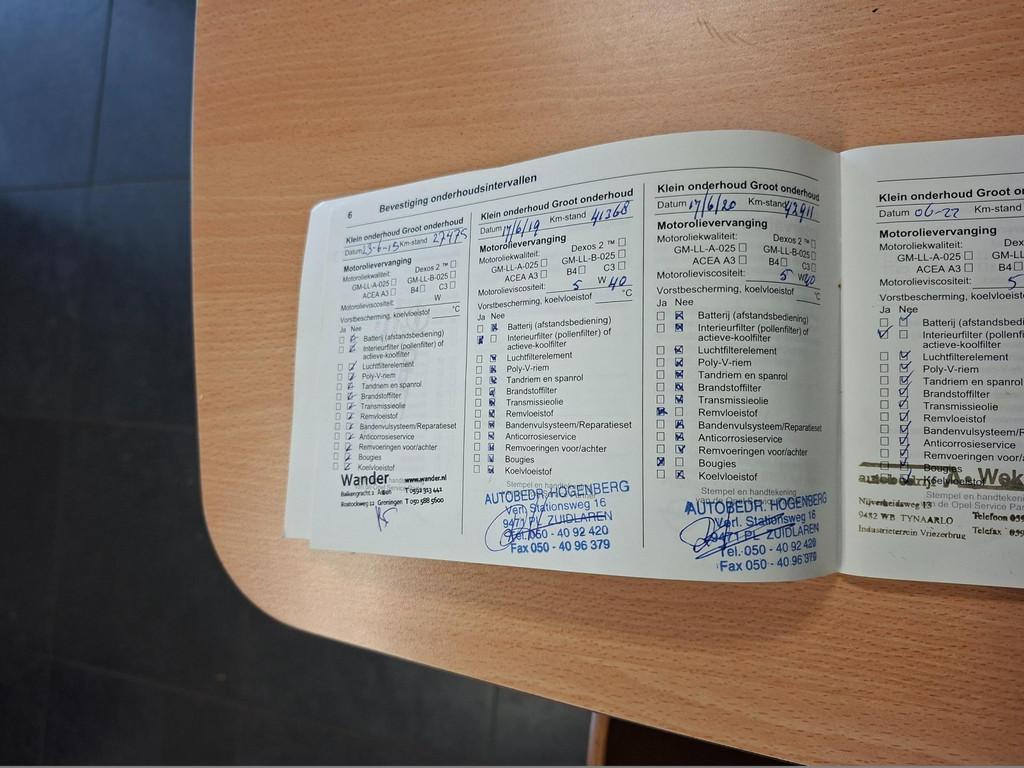 6 Bevestiging onderhoudsintervallen
Klein onderhoud Groot onderhoud
Datum 23-6-15 Km-stand 27475
Motorolievervanging
Motoroliekwaliteit:
Dexos 2 ™
GM-LL-A-025 GM-LL-B-025
ACEA A3 B4 C3
Motorolieviscositeit: W
Vorstbescherming, koelvloeistof °C
Ja Nee
Batterij (afstandsbediening)
Interieurfilter (pollenfilter) of
actieve-koolfilter
Luchtfilterelement
Poly-V-riem
Tandriem en spanrol
Brandstoffilter
Transmissieolie
Remvloeistof
Bandenvulsysteem/Reparatieset
Anticorrosieservice
Remvoeringen voor/achter
Bougies
Koelvloeistof
Wander www.wander.nl
Balkengracht 2 Assen T 0592 313 441
Rostockweg 12 Groningen T 050 588 5600
Klein onderhoud Groot onderhoud
Datum 17/6/19 Km-stand 41368
Motorolievervanging
Motoroliekwaliteit:
Dexos 2 ™
GM-LL-A-025 GM-LL-B-025
ACEA A3 B4 C3
Motorolieviscositeit: 5 W 40
Vorstbescherming, koelvloeistof °C
Ja Nee
Batterij (afstandsbediening)
Interieurfilter (pollenfilter) of
actieve-koolfilter
Luchtfilterelement
Poly-V-riem
Tandriem en spanrol
Brandstoffilter
Transmissieolie
Remvloeistof
Bandenvulsysteem/Reparatieset
Anticorrosieservice
Remvoeringen voor/achter
Bougies
Koelvloeistof
Stempel en handtekening
AUTOBEDR. HOGENBERG
Verl. Stationsweg 16
9471 PL ZUIDLAREN
Tel. 050 - 40 92 420
Fax 050 - 40 96 379
Klein onderhoud Groot onderhoud
Datum 17/6/20 Km-stand 42911
Motorolievervanging
Motoroliekwaliteit:
Dexos 2 ™
GM-LL-A-025 GM-LL-B-025
ACEA A3 B4 C3
Motorolieviscositeit: 5 W 40
Vorstbescherming, koelvloeistof °C
Ja Nee
Batterij (afstandsbediening)
Interieurfilter (pollenfilter) of
actieve-koolfilter
Luchtfilterelement
Poly-V-riem
Tandriem en spanrol
Brandstoffilter
Transmissieolie
Remvloeistof
Bandenvulsysteem/Reparatieset
Anticorrosieservice
Remvoeringen voor/achter
Bougies
Koelvloeistof
Stempel en handtekening
van de Opel Service Partner
AUTOBEDR. HOGENBERG
Verl. Stationsweg 16
9471 PL ZUIDLAREN
Tel. 050 - 40 92 420
Fax 050 - 40 96 379
Klein onderhoud Groot on
Datum 06-22 Km-stand
Motorolievervanging
Motoroliekwaliteit:
Dex
GM-LL-A-025 GM-LL
ACEA A3 B4
Motorolieviscositeit: 5
Vorstbescherming, koelvloeisto
Ja Nee
Batterij (afstandsbedienin
Interieurfilter (pollenfilter
actieve-koolfilter
Luchtfilterelement
Poly-V-riem
Tandriem en spanrol
Brandstoffilter
Transmissieolie
Remvloeistof
Bandenvulsysteem/Repar
Anticorrosieservice
Remvoeringen voor/ac
Bougies
Koelvloeistof
Stempel en handteken
van de Opel Service Par
autobedrijf A. Wok
Nijverheidsweg 13
9482 WB TYNAARLO Telefoon 059
Industrieterrein Vriezerbrug Telefax 059